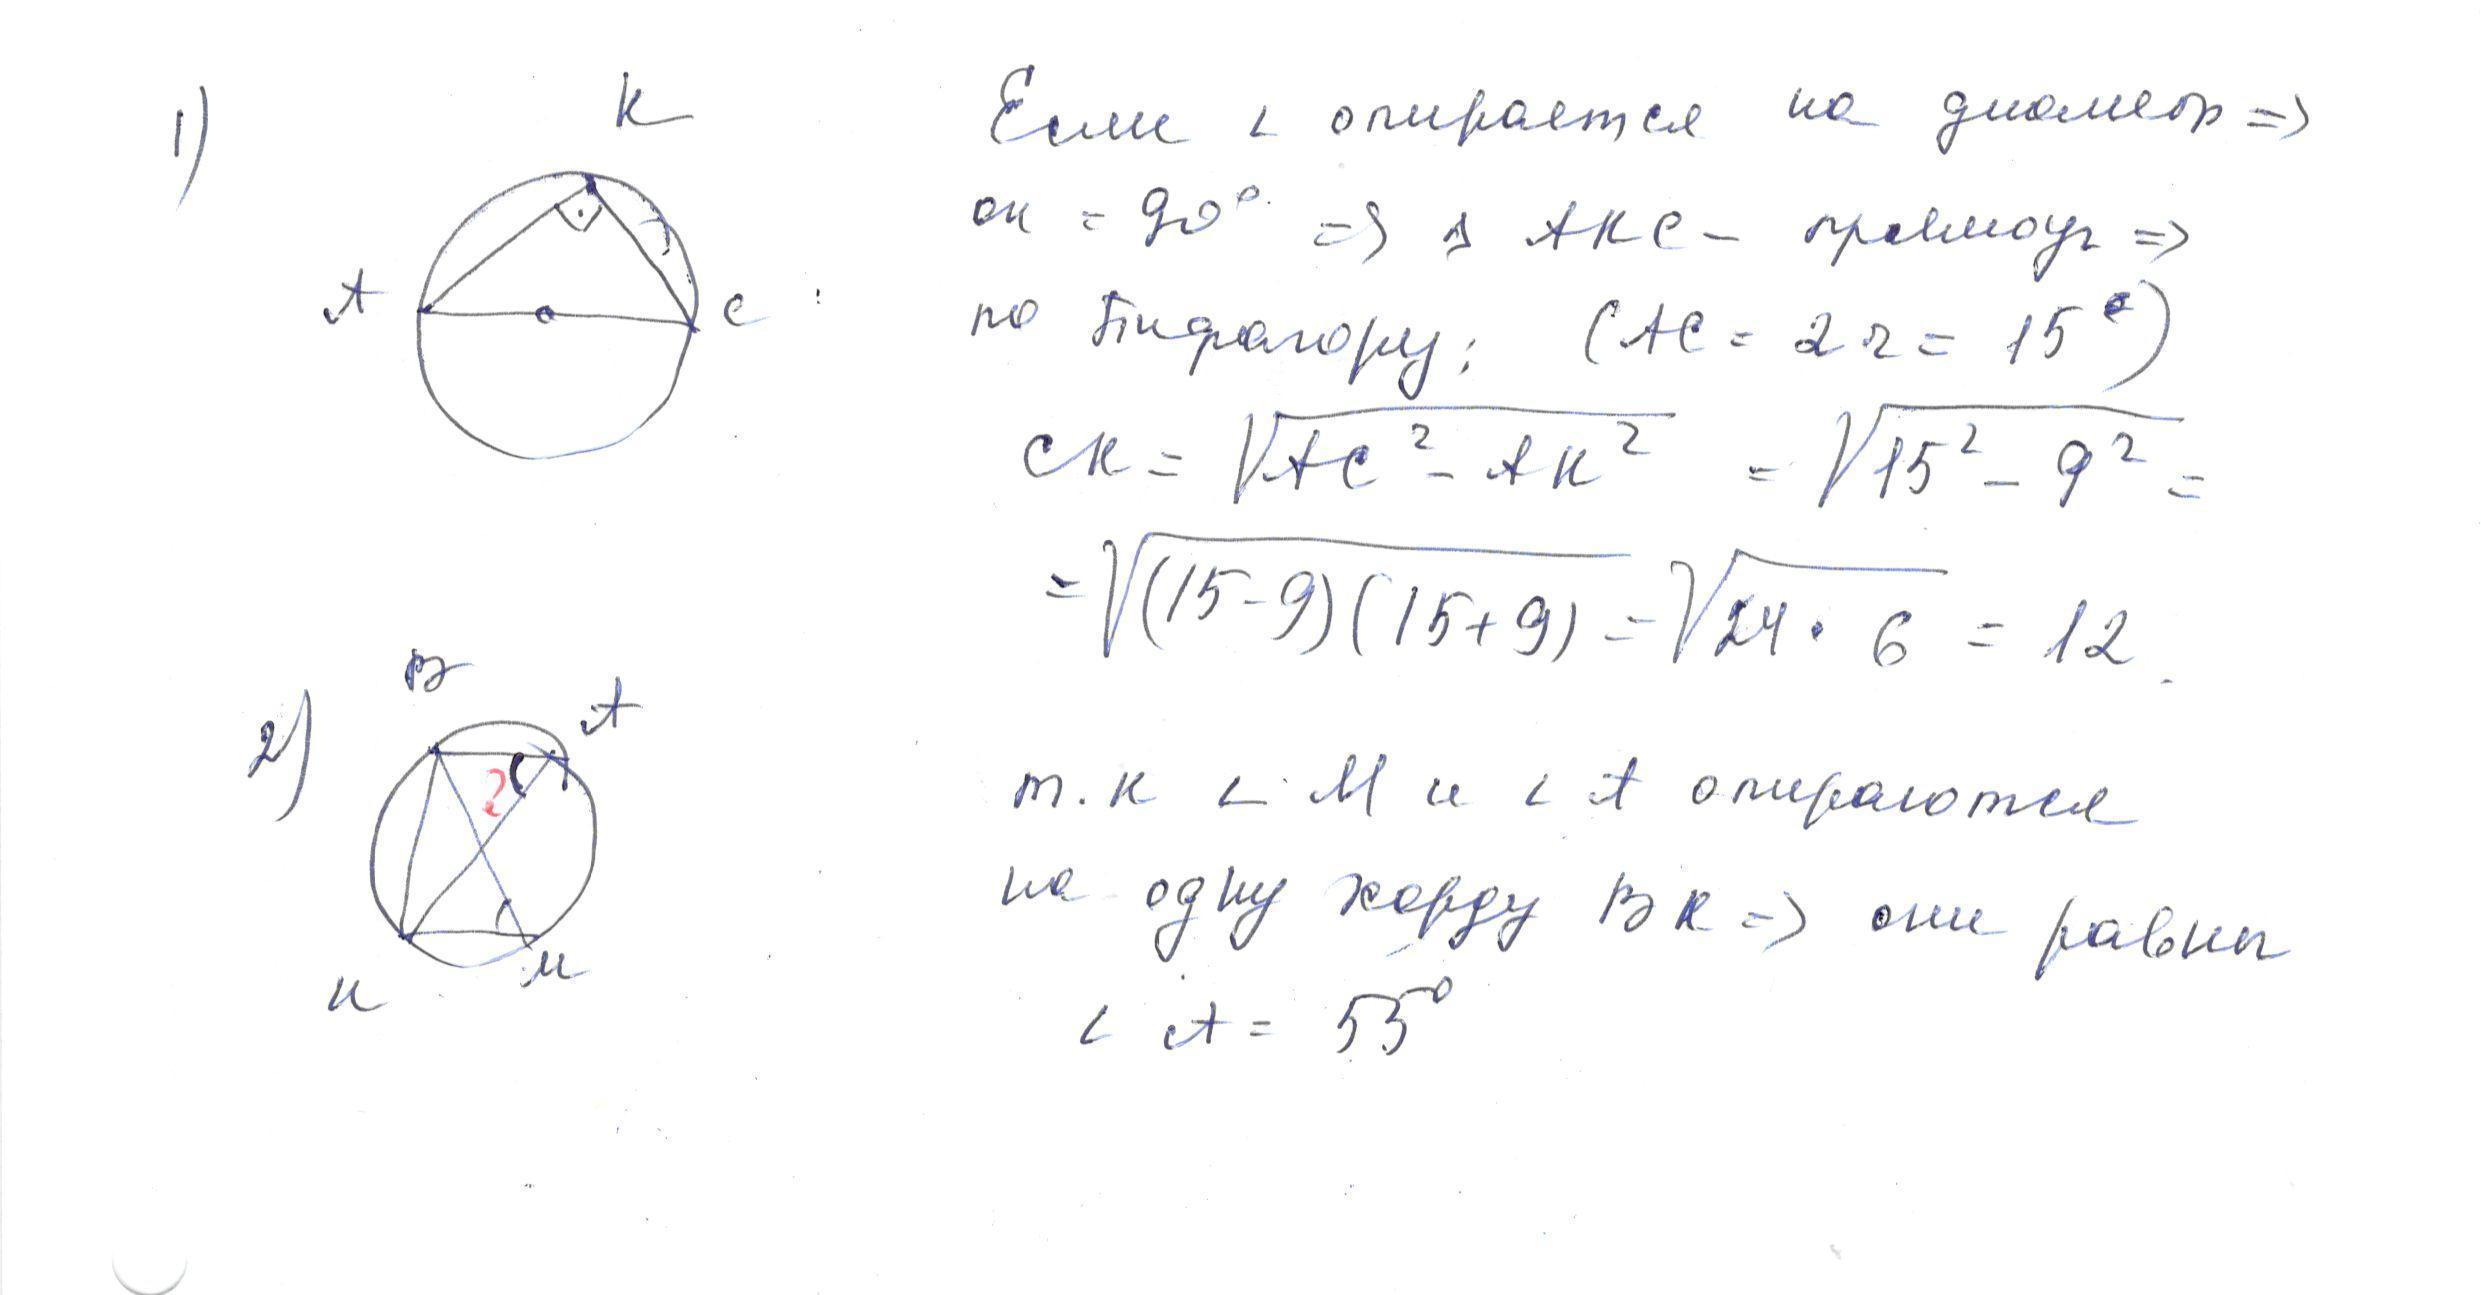 1)
К
А
С
Если ∠ опирается на диаметр =>
он = 90° => Δ АКС – прямоуг =>
по Пифагору: (АС = 2r = 15)
СК = √АС² - АК² = √15² - 9² =
= √(15-9)(15+9) = √24·6 = 12.
2)
В
А
?
К
М
т.к ∠ М и ∠ А опираются
на одну хорду ВК => они равны
∠ А = 55°